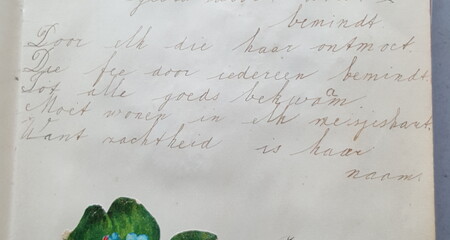 bemindt
Door elk die haar ontmoet.
Die fee door iedereen bemindt
Tot alle goeds bekwâm
Moet wonen in elk meisjeshart.
Want zachtheid is haar
naam.